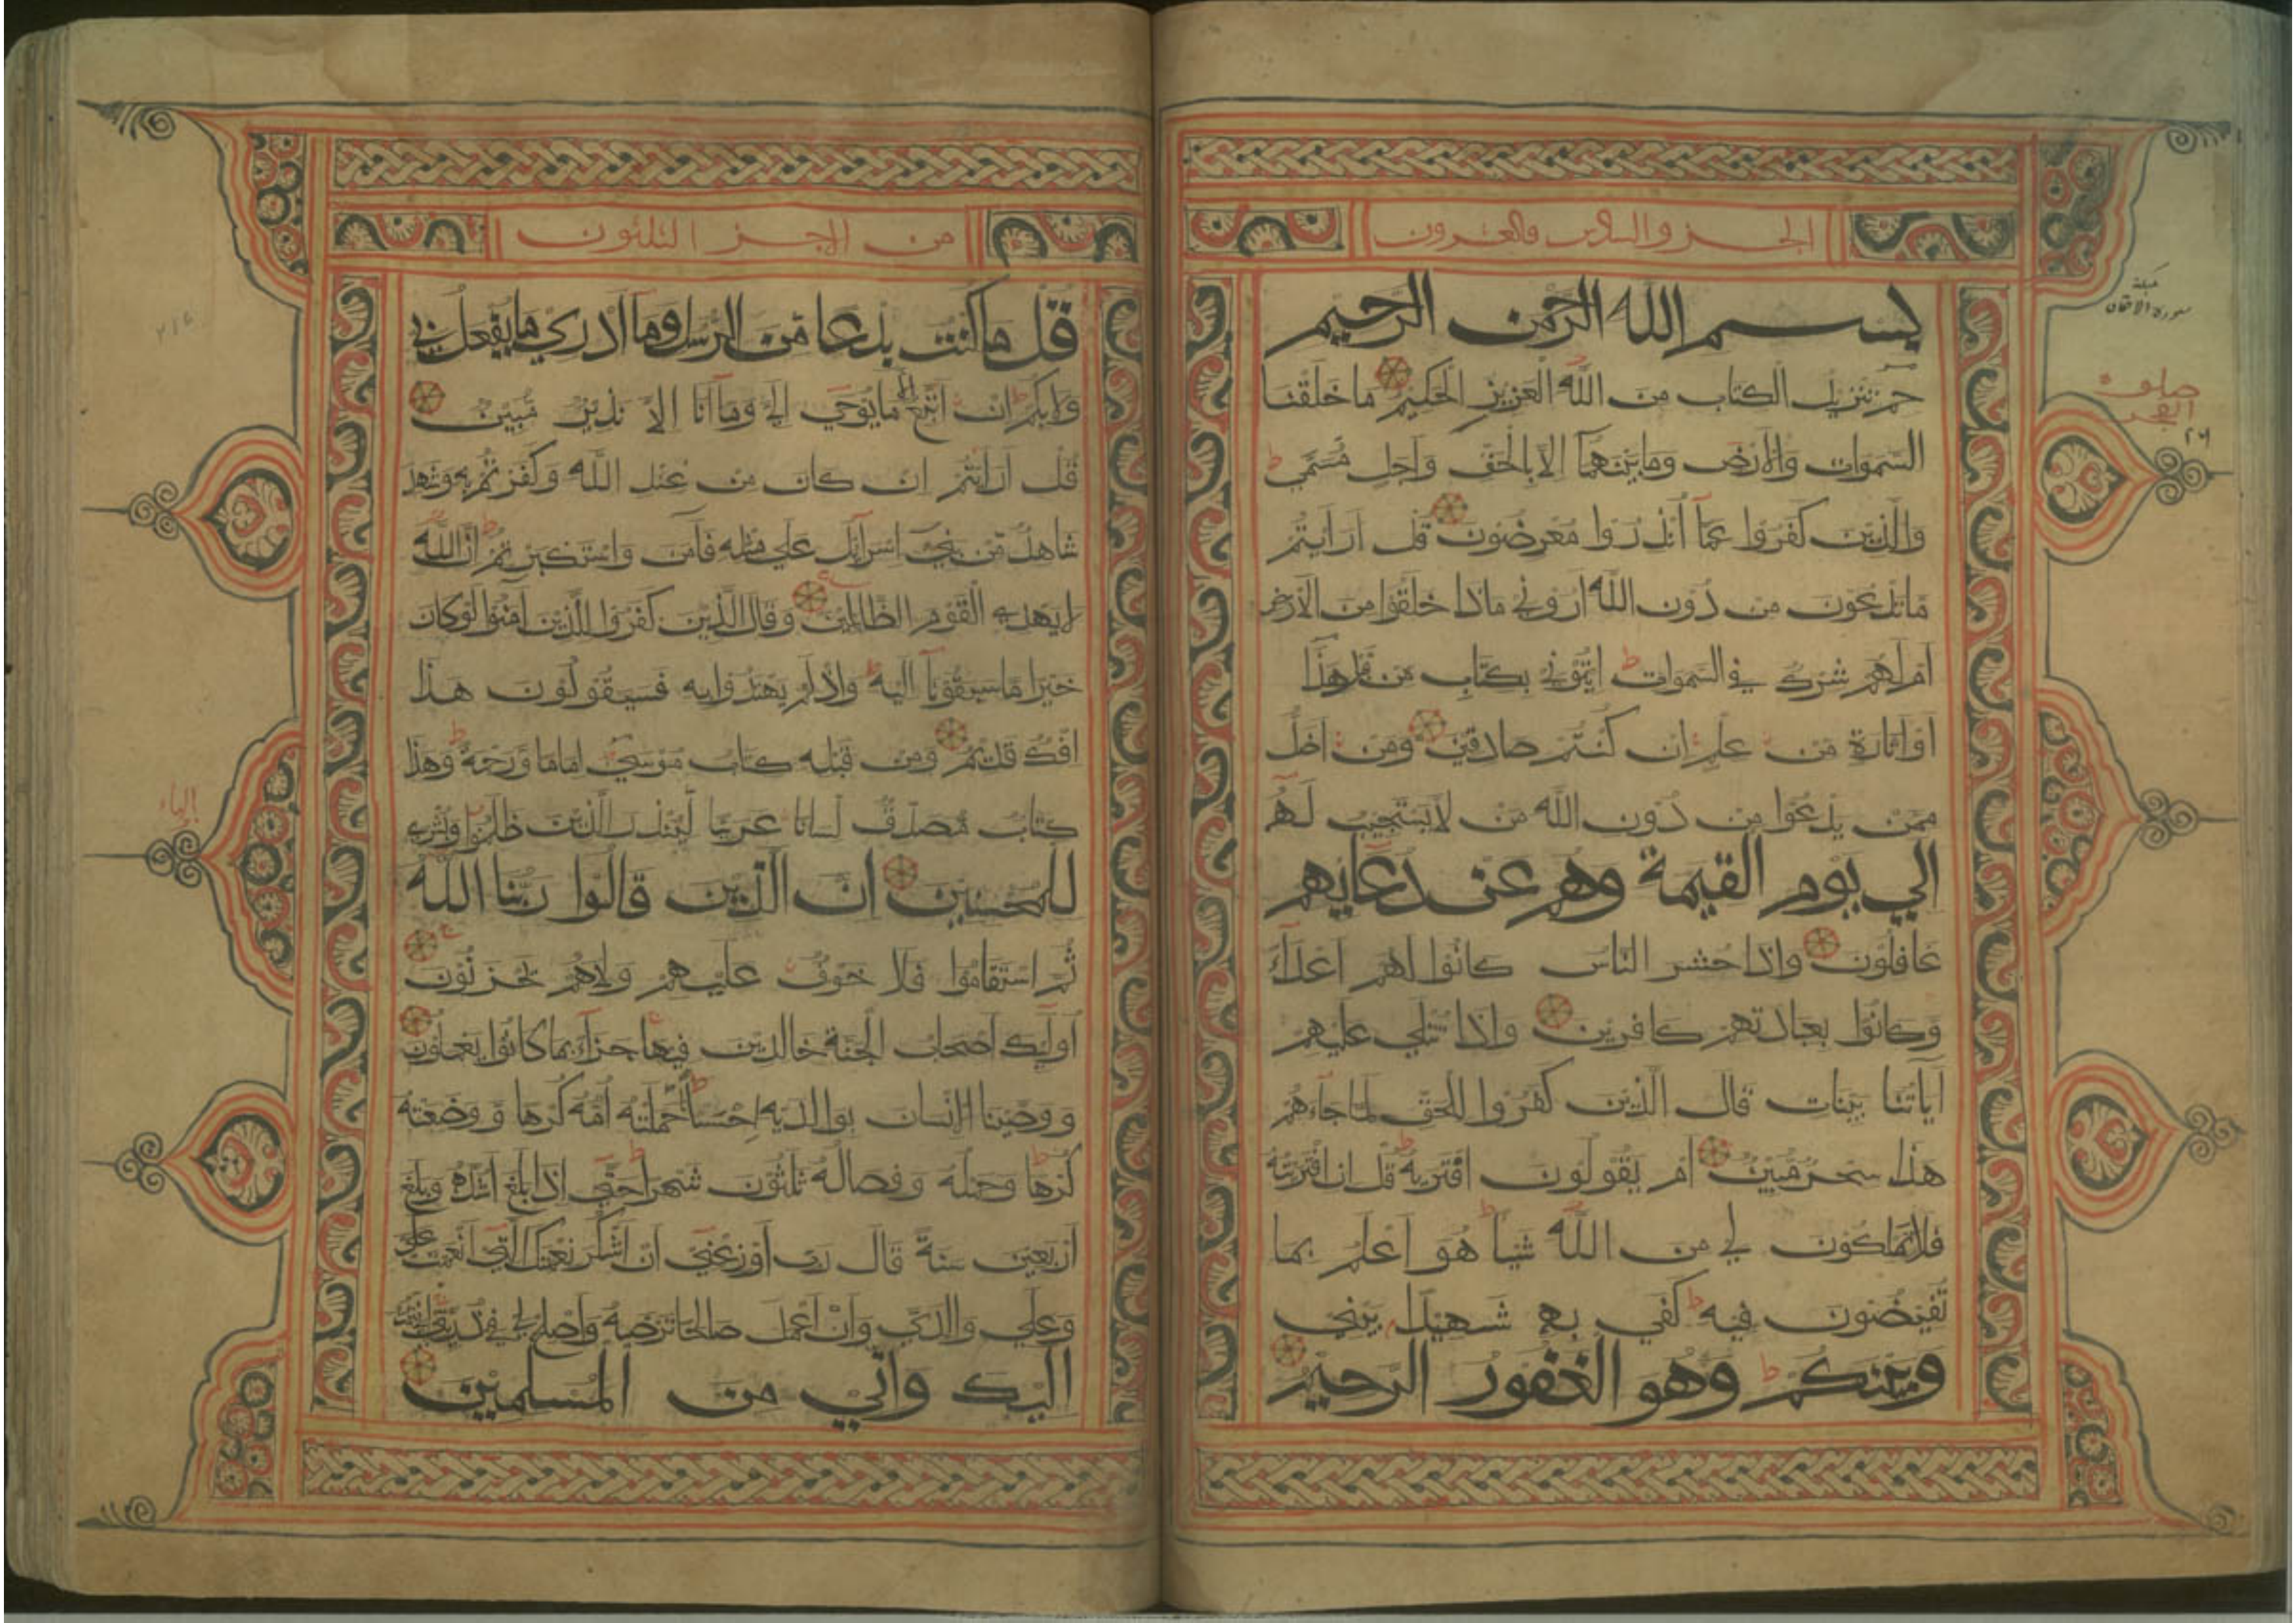 الجزو السادس والعشرون
بسم الله الرحمن الرحيم
حم تنزيل الكتاب من الله العزيز الحكيم ما خلقنا
السموات والارض وما بينهما الا بالحق واجل مسمي
والذين كفروا عما انذروا معرضون قل ارايتم
ما تدعون من دون الله اروني ماذا خلقوا من الارض
ام لهم شرك في السموات ايتوني بكتاب من قبل هذا
او اثارة من علم ان كنتم صادقين ومن اضل
ممن يدعوا من دون الله من لا يستجيب له
الي يوم القيمة وهم عن دعايهم
غافلون واذا حشر الناس كانوا لهم اعداء
وكانوا بعبادتهم كافرين واذا تتلي عليهم
اياتنا بينات قال الذين كفروا للحق لما جاءهم
هذا سحر مبين ام يقولون افتريه قل ان افتريته
فلا تملكون لي من الله شيا هو اعلم بما
تفيضون فيه كفي به شهيدا بيني
وبينكم وهو الغفور الرحيم
مكية
سورة الاحقاف
صلوة
الفجر
٢٦
من الاجز الثلثون
قل ما كنت بدعا من الرسل وما ادري ما يفعل بي
ولا بكم ان اتبع الا ما يوحي الي وما انا الا نذير مبين
قل ارايتم ان كان من عند الله وكفرتم به وشهد
شاهد من بني اسرائل علي مثله فامن واستكبرتم ان الله
لا يهدي القوم الظالمين وقال الذين كفروا للذين امنوا لو كان
خيرا ما سبقونا اليه واذ لم يهتدوا به فسيقولون هذا
افك قديم ومن قبله كتاب موسي اماما ورحمة وهذا
كتاب مصدق لسانا عربيا لينذر الذين ظلموا وبشري
للمحسنين ان الذين قالوا ربنا الله
ثم استقاموا فلا خوف عليهم ولا هم يحزنون
اوليك اصحاب الجنة خالدين فيها جزاء بما كانوا يعملون
ووصينا الانسان بوالديه احسنا حملته امه كرها ووضعته
كرها وحمله وفصاله ثلثون شهرا حتي اذا بلغ اشده وبلغ
اربعين سنة قال رب اوزعني ان اشكر نعمتك التي انعمت علي
وعلي والدي وان اعمل صالحا ترضه واصلح لي في ذريتي اني تبت
اليك واني من المسلمين